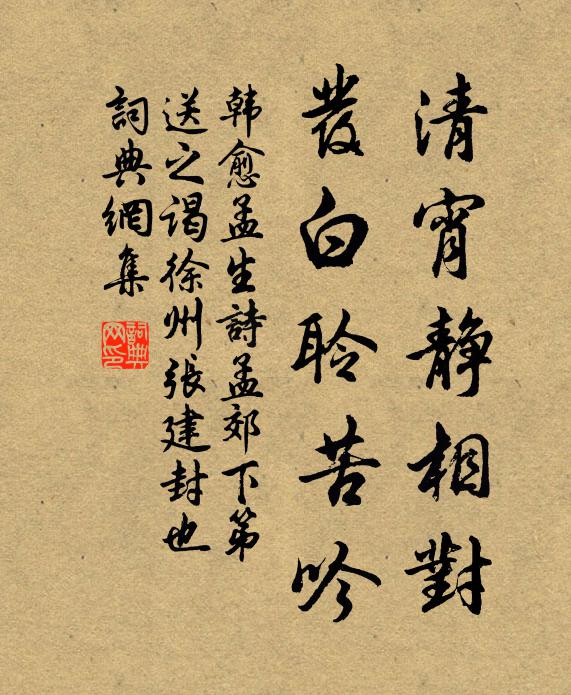 清宵静相對
發白聆苦吟
韩愈孟生詩孟郊下第
送之谒徐州張建封也
詞典網集
詞典网印